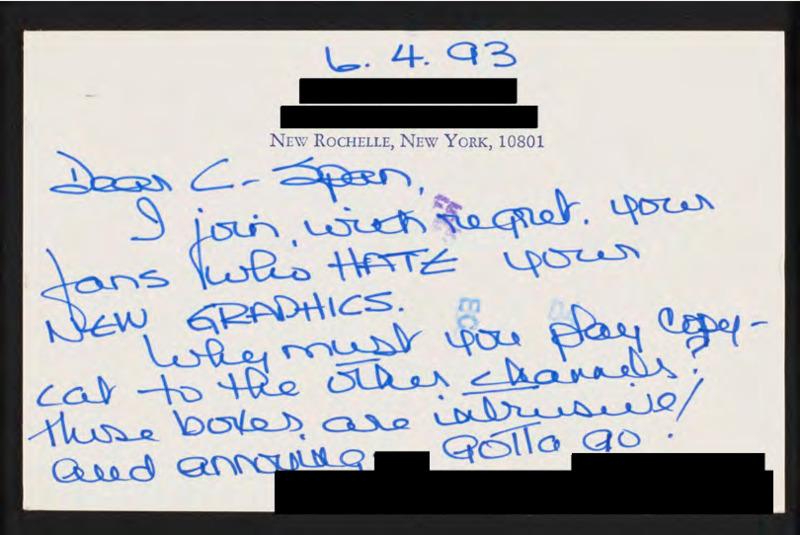 6. 4. 93
NEW ROCHELLE, NEW YORK, 10801
Dear C-Span,
I join, with regret. your
fans who HATE your
NEW GRAPHICS.
Why must you play copy-
cat to the other channels?
those boxes are intrusive/
and annoying GOTTA GO.